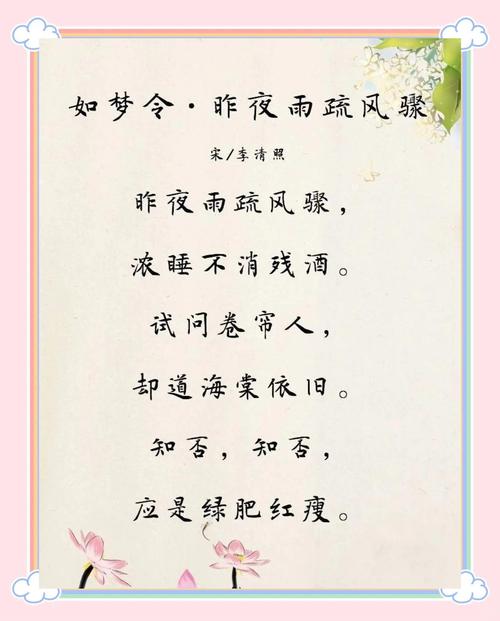 如梦令·昨夜雨疏风骤
宋/李清照
昨夜雨疏风骤，
浓睡不消残酒。
试问卷帘人，
却道海棠依旧。
知否，知否，
应是绿肥红瘦。